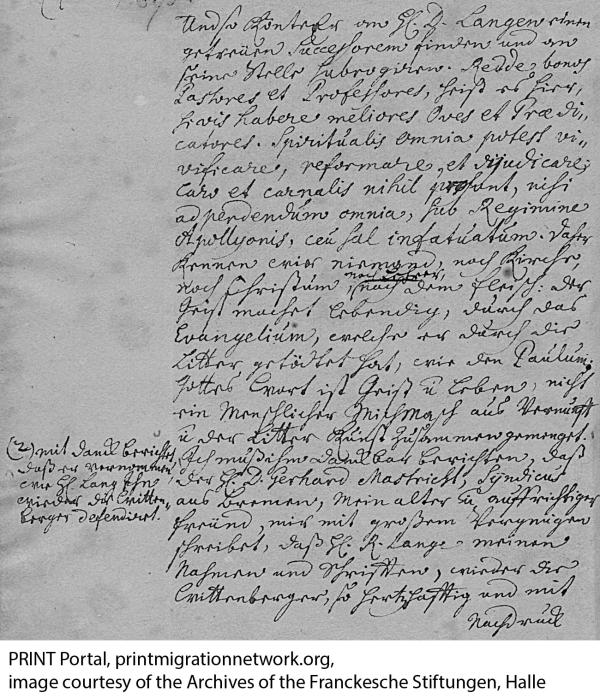 Und so könte Er an H. D. Langen einen
getreüen Successorem finden und an
seine Stelle subrogiren. Redde bonos
Pastores et Professores, heist es hier,
si vis habere meliores Oves et Prædi„
catores. Spiritualis omnia potest vi„
vificare, reformare, et dijudicare;
Caro et carnalis nihil prosont, nisi
ad perdendum omnia, sub Regimine
Apollyonis, ceu sal infatuatum. Daher
kennen wir niemand, noch Kirche,
noch Lehrer,
noch Christum, nach dem fleisch: der
Geist machet lebendig, durch das
Evangelium, welche er durch die
Litter getödtet hat, wie den Paulum.
Gottes Wort ist Geist u Leben, nicht
ein Menschlicher Mischmasch aus Vernunft
u der Litter Kunst zusammen gemenget.
Ich muß ihm danckbar berichten, daß
der H. D. Gerhard Mastricht, Syndicus
aus Bremen, mein alter u auffrichtiger
freünd, mir mit großem Vergnügen
schreibet, daß H. R. Lange meinen
Nahmen und Schrifften, wieder die
Wittenberger, so hertzhafftig und mit
Nachdruck
(2) mit danck berichtet
daß er vernommen
wie H. Lang Ihn
wieder die Witten„
berger defendiret.
PRINT Portal, printmigrationnetwork.org,
image courtesy of the Archives of the Franckesche Stiftungen, Halle